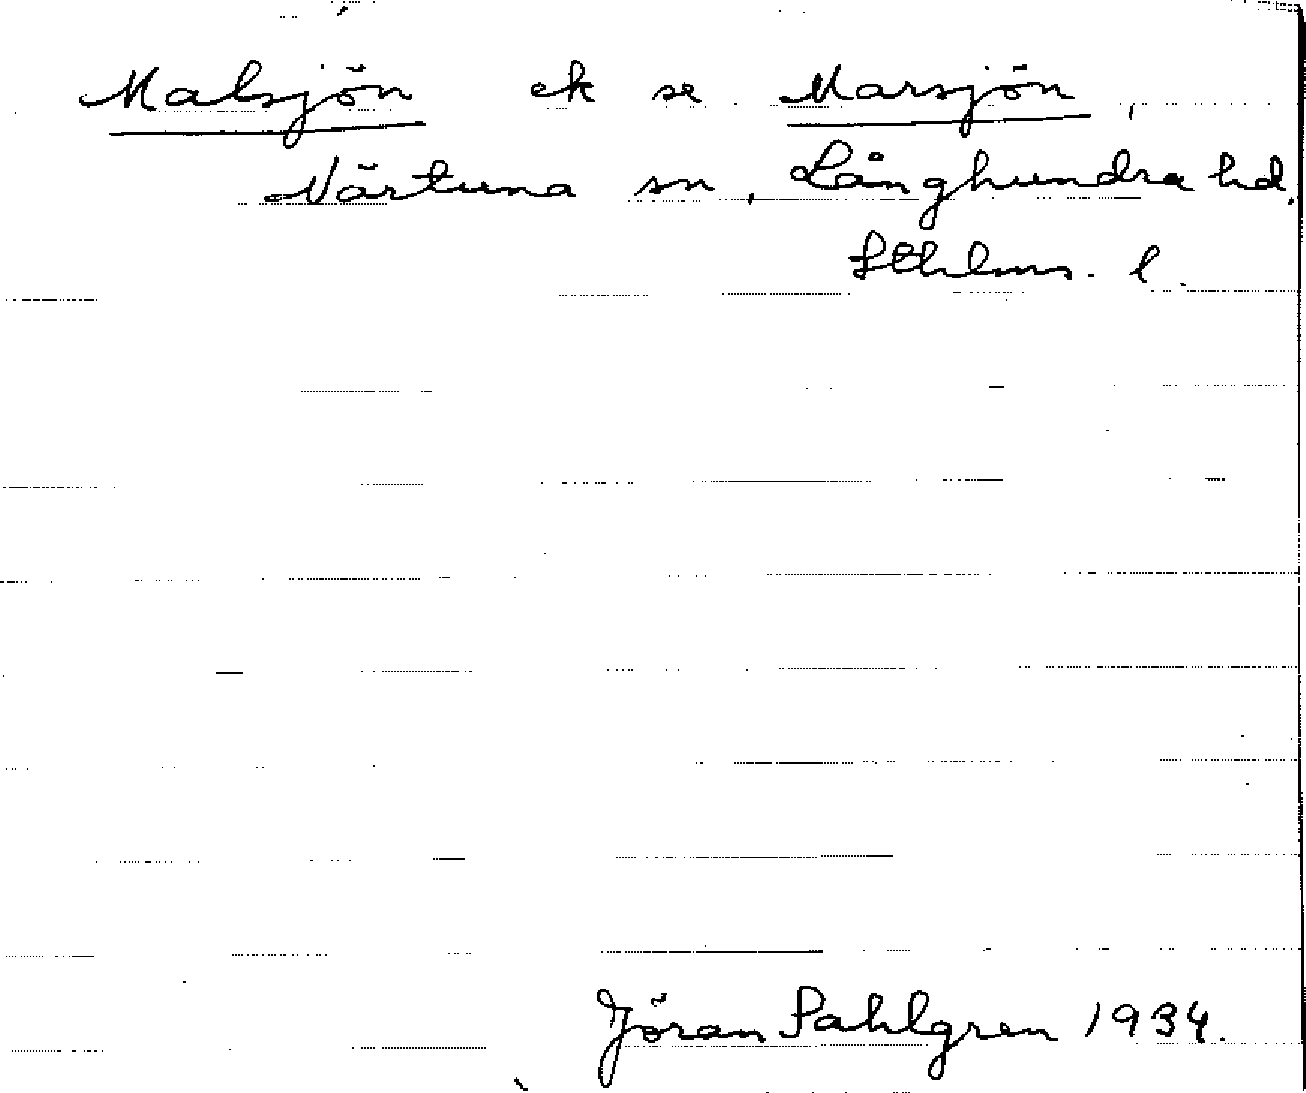 Malsjön ek se Marsjön,
Närtuna sn, Långhundra hd,
Sthlms. l.
Jöran Sahlgren 1934.